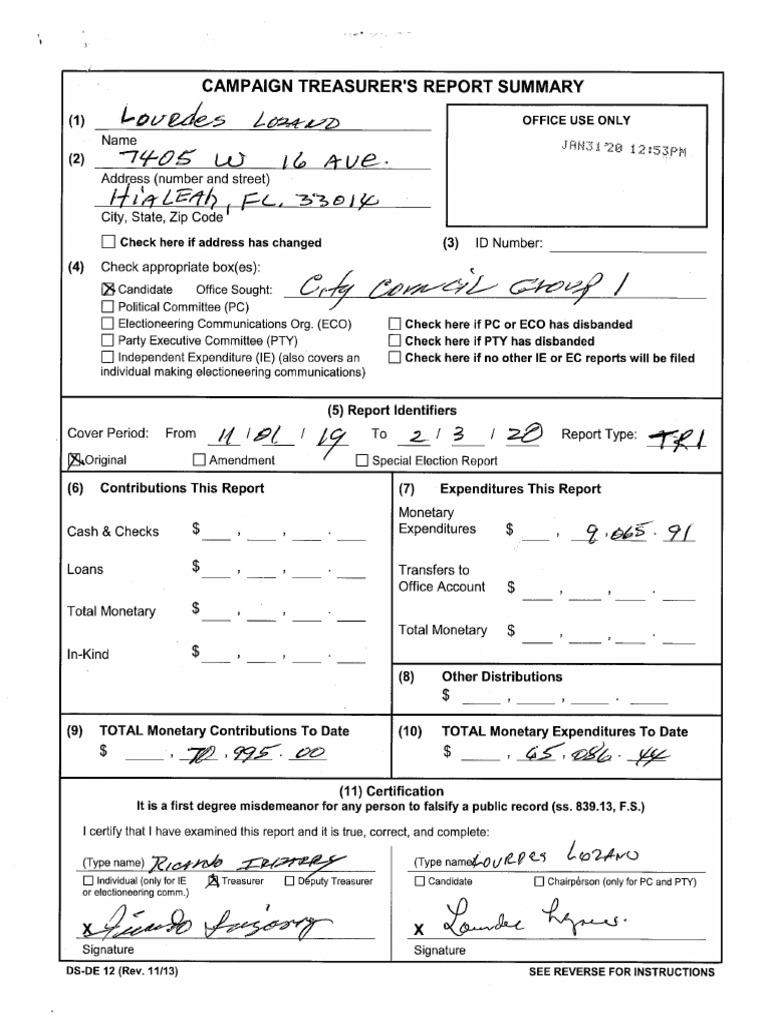 CAMPAIGN TREASURER'S REPORT SUMMARY
(1) Lourdes Lozano
Name
OFFICE USE ONLY
JAN31'20 12:53PM
(2) 7405 W 16 Ave.
Address (number and street)
Hialeah, FL. 33014
City, State, Zip Code
Check here if address has changed
(3) ID Number:
(4) Check appropriate box(es):
Candidate Office Sought: City Council Group 1
Political Committee (PC)
Electioneering Communications Org. (ECO) Check here if PC or ECO has disbanded
Party Executive Committee (PTY) Check here if PTY has disbanded
Independent Expenditure (IE) (also covers an Check here if no other IE or EC reports will be filed
individual making electioneering communications)
(5) Report Identifiers
Cover Period: From 11 / 01 / 19 To 2 / 3 / 20 Report Type: TR1
Original Amendment Special Election Report
(6) Contributions This Report
Cash & Checks $ , , .
Loans $ , , .
Total Monetary $ , , .
In-Kind $ , , .
(7) Expenditures This Report
Monetary
Expenditures $ , 9,065.91
Transfers to
Office Account $ , , .
Total Monetary $ , , .
(8) Other Distributions
$ , , .
(9) TOTAL Monetary Contributions To Date
$ , 70,995.00
(10) TOTAL Monetary Expenditures To Date
$ , 65,086.44
(11) Certification
It is a first degree misdemeanor for any person to falsify a public record (ss. 839.13, F.S.)
I certify that I have examined this report and it is true, correct, and complete:
(Type name) Ricardo Irizarry
Individual (only for IE Treasurer Deputy Treasurer
or electioneering comm.)
X Ricardo Irizarry
Signature
(Type name) Lourdes Lozano
Candidate Chairperson (only for PC and PTY)
X
Signature
DS-DE 12 (Rev. 11/13) SEE REVERSE FOR INSTRUCTIONS